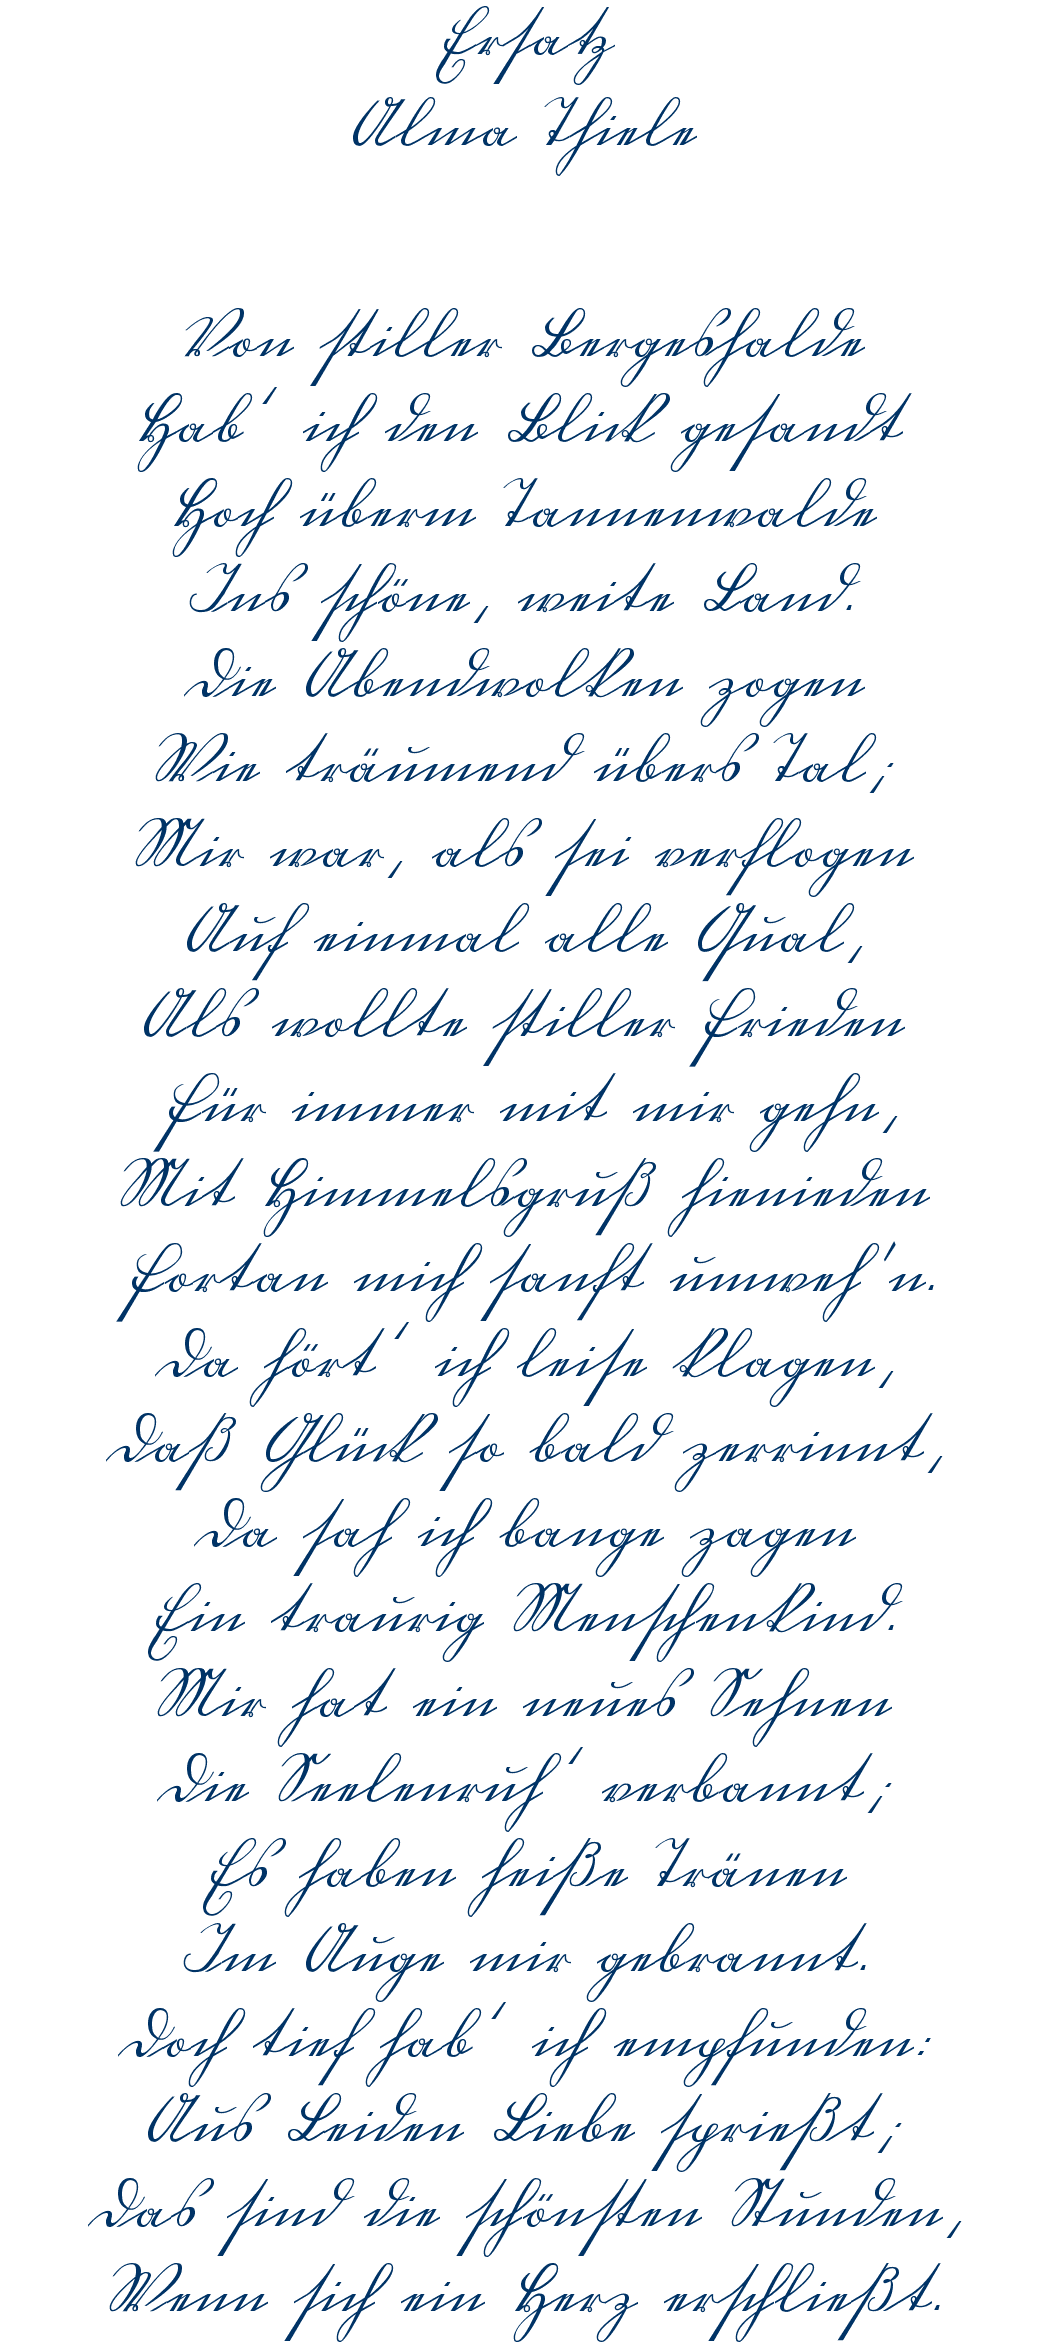 Ersatz
Alma Thiele
Von stiller Bergeshalde
Hab' ich den Blick gesandt
Hoch überm Tannenwalde
Ins schöne, weite Land.
Die Abendwolken zogen
Wie träumend übers Tal;
Mir war, als sei verflogen
Auf einmal alle Qual,
Als wollte stiller Frieden
Für immer mit mir gehn,
Mit Himmelsgruß hienieden
Fortan mich sanft umweh'n.
Da hört' ich leise klagen,
Daß Glück so bald zerrinnt,
Da sah ich bange zagen
Ein traurig Menschenkind.
Mir hat ein neues Sehnen
Die Seelenruh' verbannt;
Es haben heiße Tränen
Im Auge mir gebrannt.
Doch tief hab' ich empfunden:
Aus Leiden Liebe sprießt;
Das sind die schönsten Stunden,
Wenn sich ein Herz erschließt.